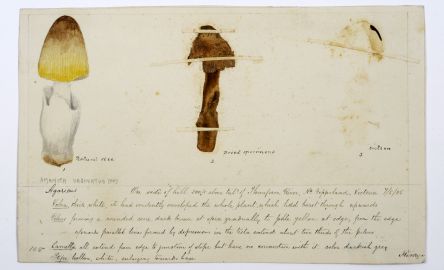 Natural size
Dried specimens
section
1
2
3
AMANITA VAGINATUS
Agaricus On side of hill above of Thompson River, Nth Gippsland, Victoria
Volva thick white, it had evidently enveloped the whole plant, which had burst through upwards
Pileus forming a rounded cone dark brown at apex gradually to pale yellow at edge, from the edge
upwards parallel lines formed by depression in the extend about two thirds of the pileus
Lamellae all extend from edge to junction of stipe but have no connection with it. color darkish grey
Stipe hollow, white, enlarging towards base